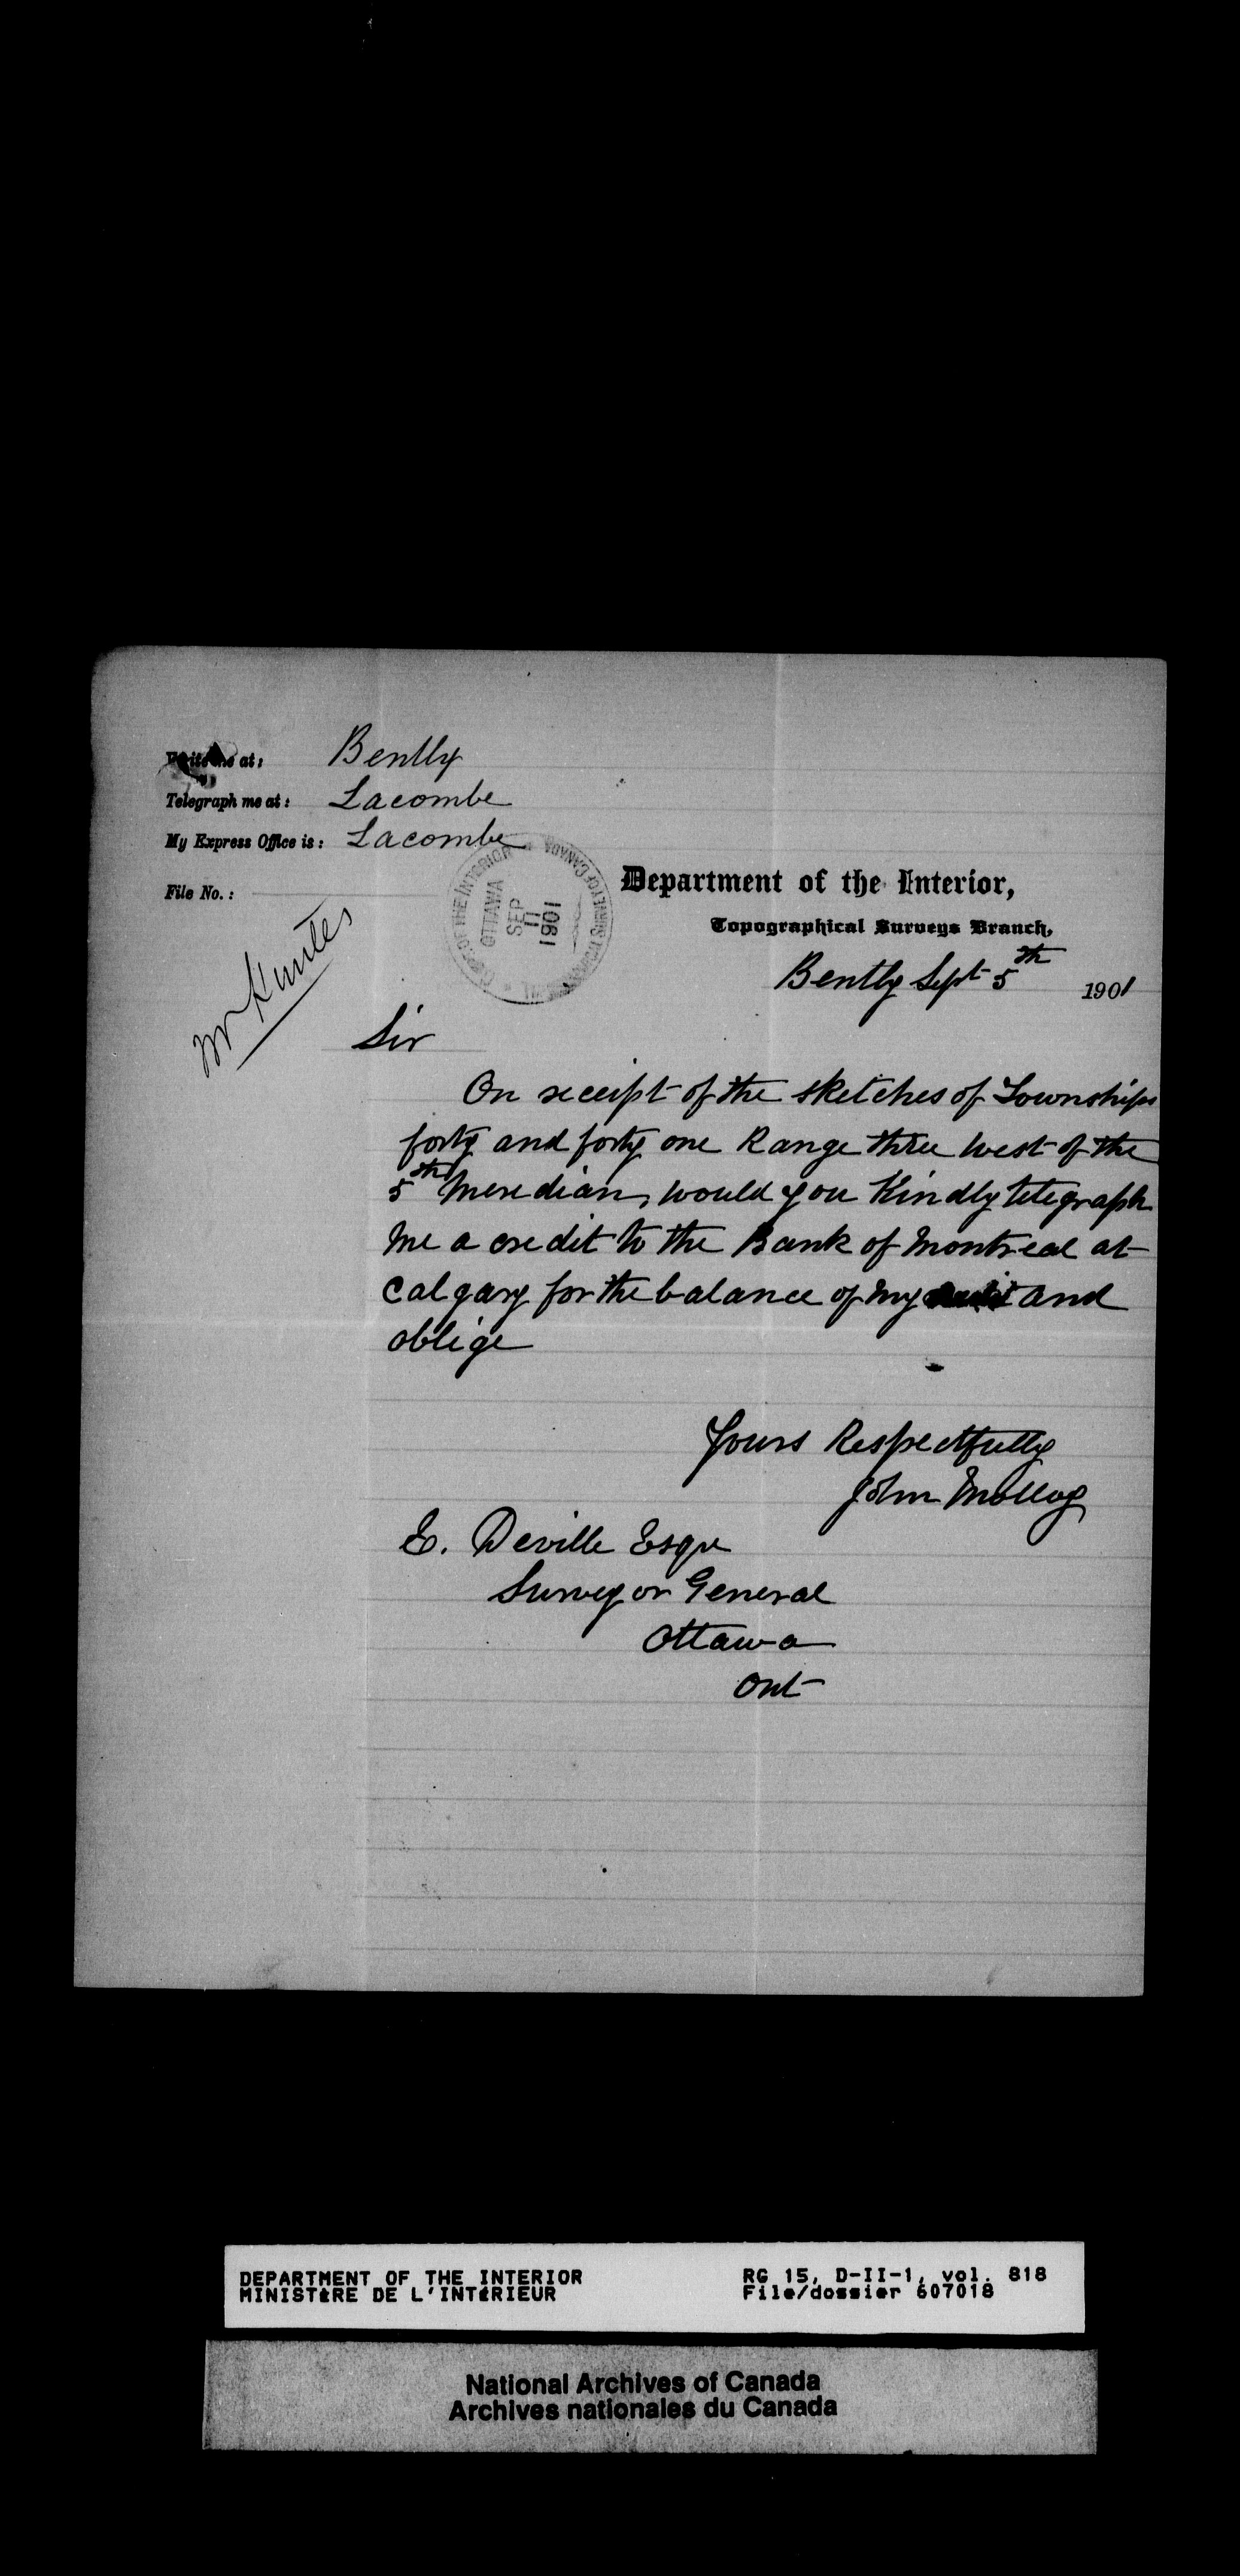 Write me at: Bently
Telegraph me at: Lacombe
My Express Office is: Lacombe
File No.:
Mr Hunter
OTTAWA
SEP
11
1901
Department of the Interior,
Topographical Surveys Branch,
Bently Sept 5th 1901
Sir
On receipt of the sketches of Townships
forty and forty one Range three West of the
5th Meridian, would you Kindly telegraph
me a credit to the Bank of Montreal at
Calgary for the balance of my and
oblige
Yours Respectfully
John Molloy
E. Deville Esqre
Surveyor General
Ottawa
Ont
DEPARTMENT OF THE INTERIOR
MINISTÈRE DE L'INTÉRIEUR
RG 15, D-II-1, vol. 818
File/dossier 607018
National Archives of Canada
Archives nationales du Canada